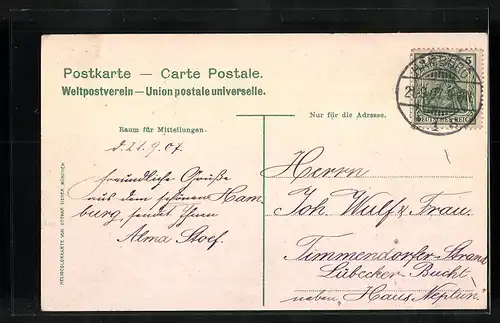 Postkarte — Carte Postale.
Weltpostverein — Union postale universelle.
Nur für die Adresse.
Raum für Mitteilungen.
d. 21. 9. 07.
freundliche Grüße
aus dem schönen Ham
burg, sendet Ihnen
Alma Stoef.
Herrn
Joh. Wulf & Frau.
Timmendorfer-Strand
Lübecker Bucht
neben „Haus Neptun."
HELIOCOLORKARTE VON OTTMAR ZIEHER, MÜNCHEN
HAMBURG
5
DEUTSCHES REICH
1